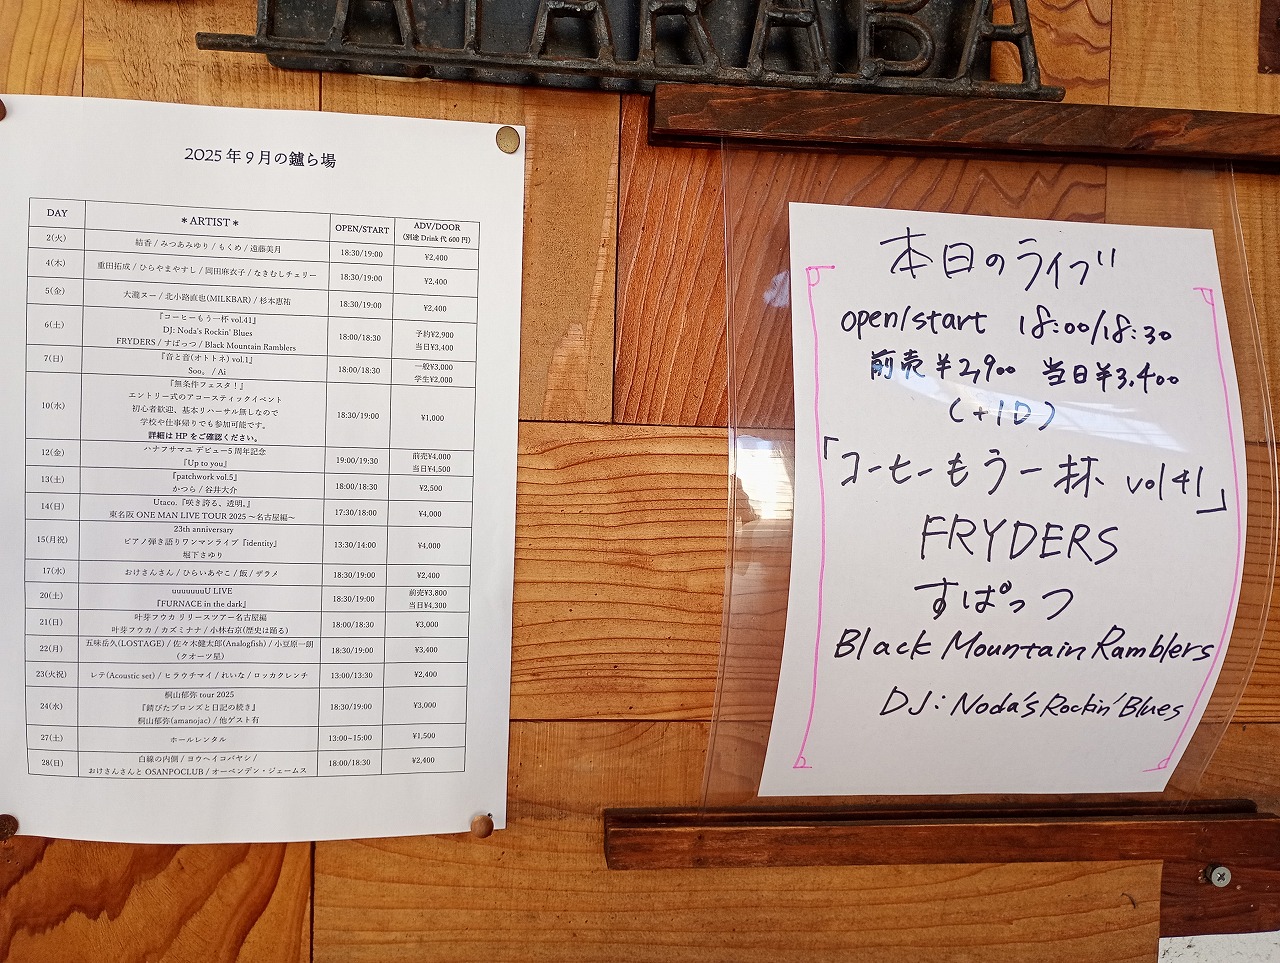 TATARABA
2025年9月の鑪ら場
DAY ＊ARTIST＊ OPEN/START ADV/DOOR
(別途 Drink 代 600 円)
2(火) 結香 / みつあみゆり / もくめ / 遠藤美月 18:30/19:00 ¥2,400
4(木) 重田拓成 / ひらやまやすし / 岡田麻衣子 / なきむしチェリー 18:30/19:00 ¥2,400
5(金) 大瀧ヌー / 北小路直也(MILKBAR) / 杉本恵祐 18:30/19:00 ¥2,400
6(土) 『コーヒーもう一杯 vol.41』 18:00/18:30 予約¥2,900
DJ: Noda's Rockin' Blues 当日¥3,400
FRYDERS / すぱっつ / Black Mountain Ramblers
7(日) 『音と音(オトトネ) vol.1』 18:00/18:30 一般¥3,000
Soo。 / Ai 学生¥2,000
10(水) 『無条件フェスタ！』 18:30/19:00 ¥1,000
エントリー式のアコースティックイベント
初心者歓迎、基本リハーサル無しなので
学校や仕事帰りでも参加可能です。
詳細は HP をご確認ください。
12(金) ハナフサマユ デビュー5 周年記念 19:00/19:30 前売¥4,000
『Up to you』 当日¥4,500
13(土) 『patchwork vol.5』 18:00/18:30 ¥2,500
かつら / 谷井大介
14(日) Utaco.『咲き誇る、透明。』 17:30/18:00 ¥4,000
東名阪 ONE MAN LIVE TOUR 2025 〜名古屋編〜
15(月祝) 23th anniversary 13:30/14:00 ¥4,000
ピアノ弾き語りワンマンライブ『identity』
堀下さゆり
17(水) おけさんさん / ひらいあやこ / 飯 / ザラメ 18:30/19:00 ¥2,400
20(土) uuuuuuuU LIVE 18:30/19:00 前売¥3,800
『FURNACE in the dark』 当日¥4,300
21(日) 叶芽フウカ リリースツアー名古屋編 18:00/18:30 ¥3,000
叶芽フウカ / カズミナナ / 小林右京(歴史は踊る)
22(月) 五味岳久(LOSTAGE) / 佐々木健太郎(Analogfish) / 小豆原一朗 18:30/19:00 ¥3,400
(クオーツ星)
23(火祝) レテ(Acoustic set) / ヒラウチマイ / れいな / ロッカクレンチ 13:00/13:30 ¥2,400
24(水) 桐山郁弥 tour 2025 18:30/19:00 ¥3,000
『錆びたブロンズと日記の続き』
桐山郁弥(amanojac) / 他ゲスト有
27(土) ホールレンタル 13:00~15:00 ¥1,500
28(日) 白線の内側 / ヨウヘイコバヤシ / 18:00/18:30 ¥2,400
おけさんさんと OSANPOCLUB / オーペンデン・ジェームス
本日のライブ!!
open/start 18:00/18:30
前売¥2,900 当日¥3,400
(+1D)
「コーヒーもう一杯 vol 41」
FRYDERS
すぱっつ
Black Mountain Ramblers
DJ: Noda's Rockin' Blues